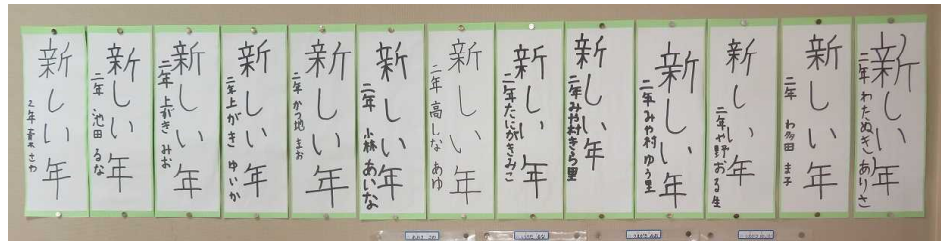 新しい年
2年 青木 さわ
新しい年
二年 池田 るな
新しい年
二年 上がき みお
新しい年
二年 上がき ゆいか
新しい年
二年 かつ地 まお
新しい年
二年 小林 あいな
新しい年
二年 高しな あゆ
新しい年
二年 たにがきみこ
新しい年
二年 みや村きら里
新しい年
二年 みや村 ゆう里
新しい年
二年 や野 おる生
新しい年
二年 わ多田 ま子
新しい年
二年 わたぬきありさ